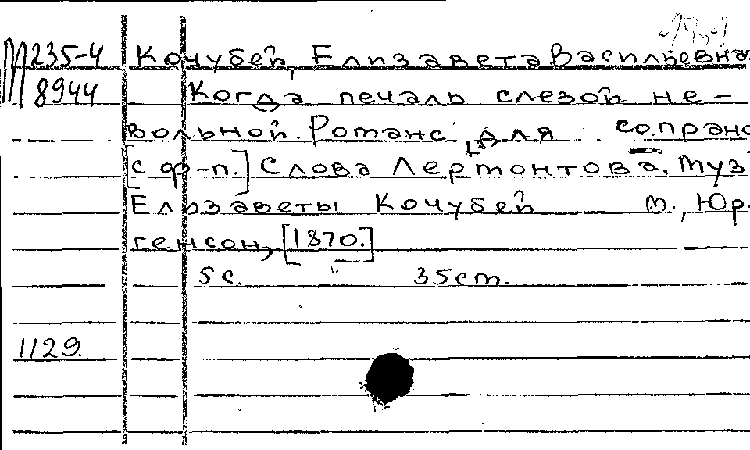 М235-4 Кочубей, Елизавета Васильевна
8944 Когда печаль слезой не-
вольной. Романс для сопрано
[с ф-п.] Слова Лермонтова. Муз
Елизаветы Кочубей М., Юр.
генсон, [1870.]
5 с. 35 см.
1129